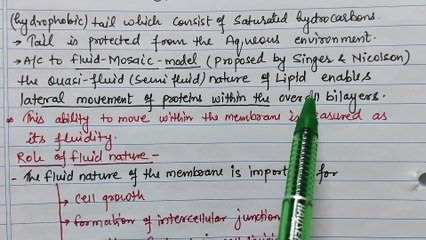 (hydrophobic) tail which consist of Saturated hydrocarbons.
→ Tail is protected from the Aqueous environment.
→ A/c to fluid-Mosaic-model (Proposed by Singer & Nicolson)
the Quasi-fluid (Semi fluid) nature of Lipid enables
lateral movement of proteins within the overall bilayers.
This ability to move within the membrane is measured as
its fluidity.
Role of fluid nature -
- The fluid nature of the membrane is for
→ cell growth
→ formation of intercellular junction